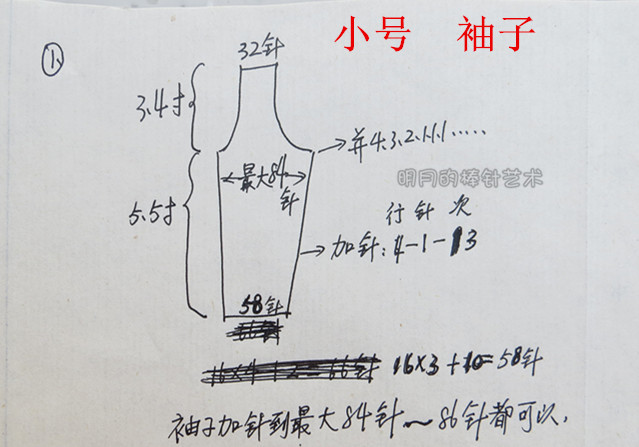 小号 袖子
①
32针
3.4寸
→并4.3.2.1.1.1.....
明月的棒针艺术
最大84针
5.5寸
行 针 次
→加针:4-1-13
58针
16×3+10=58针
袖子加针到最大84针~86针都可以,